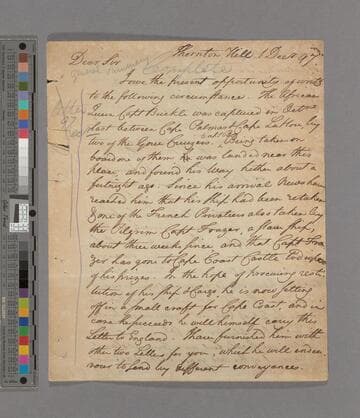 Thornton Hill 1 Decr 97
Dear Sir
complete
I owe the present opportunity of
to the following circumstance. The African
Queen Capt Buckle was captured in Octr
last between Cape Palmas & Cape Lahou, by
two of the Goree Cruizers. Being taken on
board one of them he was landed near this
place, and found his way hither about a
fortnight ago. Since his arrival News have
reached him that his ship had been retaken
& one of the French Privateers also taken by
the Pilgrim Capt a slave ship,
about three weeks since and that Capt
has gone to Cape Coast Castle to dispose
of his prizes. In the hope of procuring resti-
tution of his ship & Cargo he is now setting
off in a small craft for Cape Coast and in
case he succeeds he will himself carry this
Letter to England. I have furnished him with
other two Letters for you which he will endea-
vour to send by different conveyances.